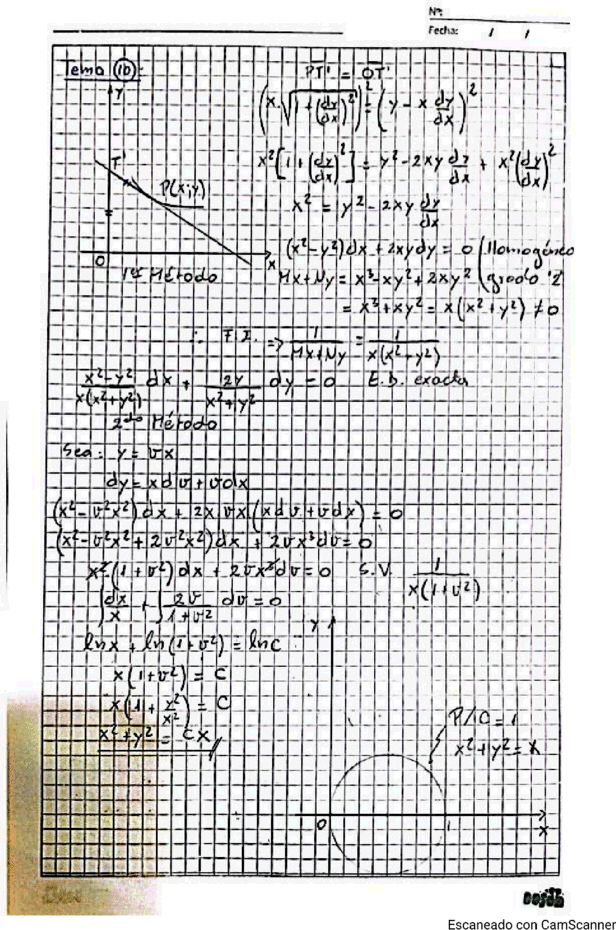 Nº:
Fecha: / /
Tema (10):
PT' = OT'
(x√(1+(dy/dx)²))² = (y - x dy/dx)²
x²[1+(dy/dx)²] = y² - 2xy dy/dx + x²(dy/dx)²
x² = y² - 2xy dy/dx
y
T'
P(x;y)
O
x
(x²-y²)dx + 2xydy = 0 (Homogénea
Mx+Ny = x³-xy²+2xy² grado "2"
= x³+xy² = x(x²+y²) ≠ 0
1er Método
∴ F.I. => 1/(Mx+Ny) = 1/(x(x²+y²))
(x²-y²)/(x(x²+y²)) dx + 2y/(x²+y²) dy = 0 E.D. exacta
2do Método
Sea: y = vx
dy = xdv + vdx
(x²-v²x²)dx + 2x.vx.(xdv+vdx) = 0
(x²-v²x²+2v²x²)dx + 2vx³dv = 0
x²(1+v²)dx + 2vx³dv = 0 S.V. 1/(x(1+v²))
∫dx/x + ∫2v/(1+v²) dv = 0
lnx + ln(1+v²) = lnC
x(1+v²) = C
x(1+y²/x²) = C
x²+y² = Cx
y
P/C = 1
x²+y² = x
O
1
x
Escaneado con CamScanner